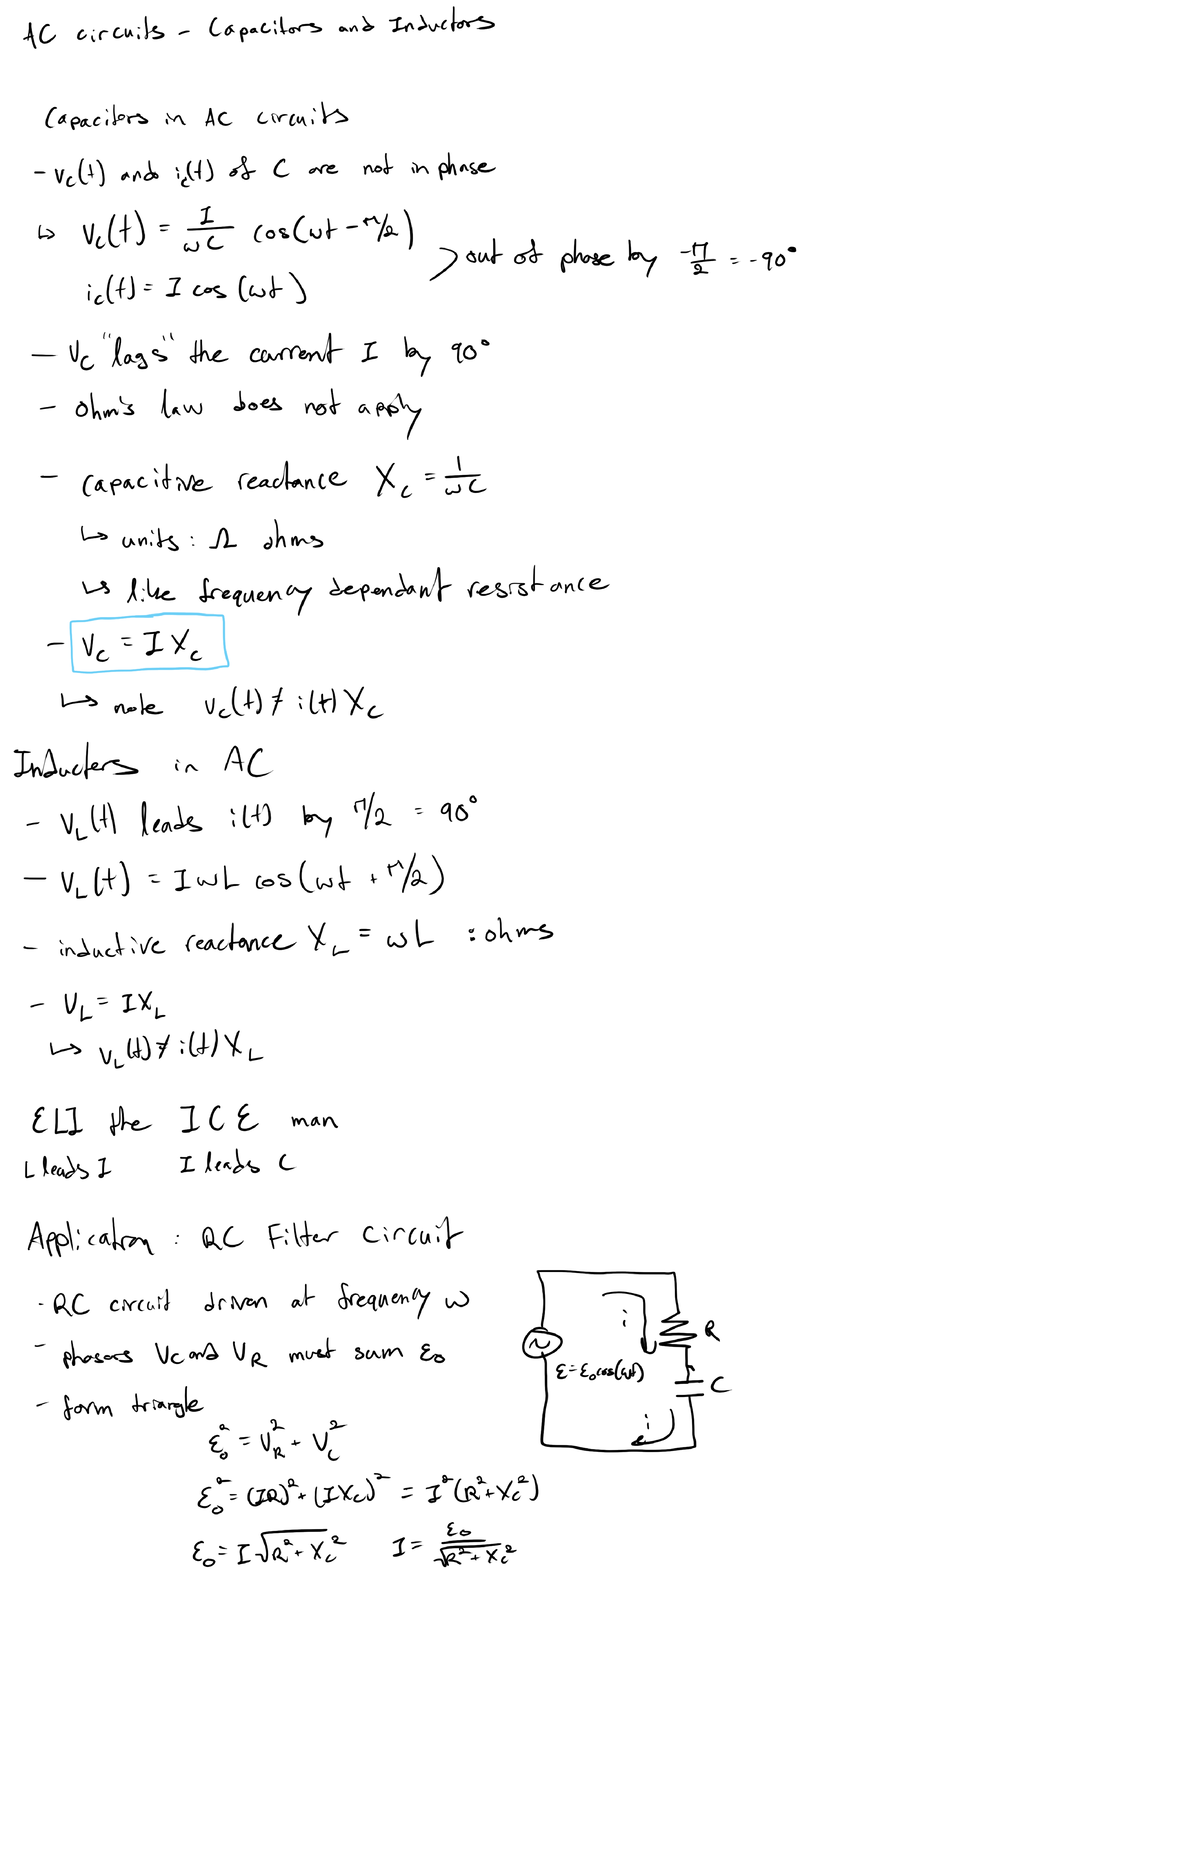 AC circuits - Capacitors and Inductors
Capacitors in AC circuits
- Vc(t) and ic(t) of C are not in phase
↳ Vc(t) = I/ωC cos(ωt - π/2)
ic(t) = I cos(ωt)
> out of phase by -π/2 = -90°
- Vc "lags" the current I by 90°
- Ohm's law does not apply
- capacitive reactance Xc = 1/ωC
↳ units: Ω ohms
↳ like frequency dependant resistance
- Vc = I Xc
↳ note Vc(t) ≠ i(t) Xc
Inducters in AC
- VL(t) leads i(t) by π/2 = 90°
- VL(t) = IωL cos(ωt + π/2)
- inductive reactance XL = ωL : ohms
- VL = IXL
↳ VL(t) ≠ i(t) XL
ELI the ICE man
L leads I I leads C
Application: RC Filter Circuit
- RC circuit driven at frequency ω
- phasors Vc and VR must sum ε₀
- form triangle
ε₀² = VR² + Vc²
ε₀² = (IR)² + (IXc)² = I²(R² + Xc²)
ε₀ = I√(R² + Xc²) I = ε₀/√(R² + Xc²)
i
R
ε = ε₀cos(ωt)
C
i